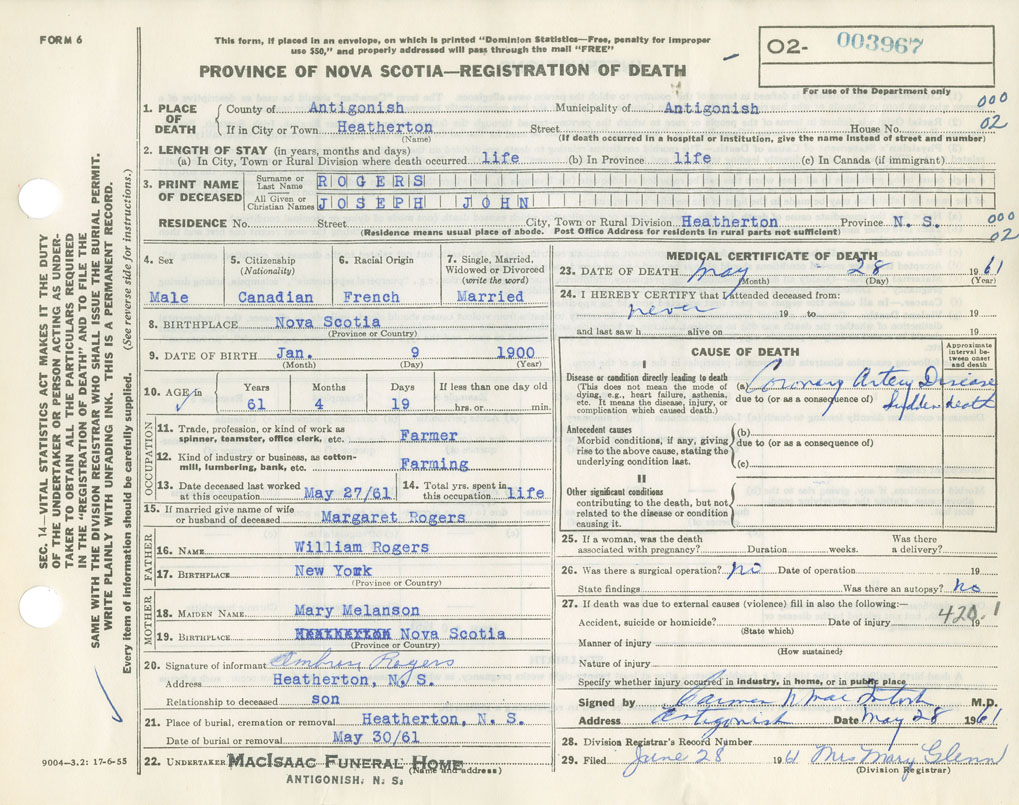 FORM 6
This form, if placed in an envelope, on which is printed "Dominion Statistics—Free, penalty for improper
use $50," and properly addressed will pass through the mail "FREE"
O2- 003967
For use of the Department only
PROVINCE OF NOVA SCOTIA—REGISTRATION OF DEATH
1. PLACE OF DEATH
County of Antigonish Municipality of Antigonish 000
If in City or Town Heatherton Street House No. 02
(Name) (If death occurred in a hospital or institution, give the name instead of street and number)
2. LENGTH OF STAY (in years, months and days)
(a) In City, Town or Rural Division where death occurred life (b) In Province life (c) In Canada (if immigrant)
3. PRINT NAME OF DECEASED
Surname or Last Name ROGERS
All Given or Christian Names JOSEPH JOHN
RESIDENCE No. Street City, Town or Rural Division Heatherton Province N. S. 000
(Residence means usual place of abode. Post Office Address for residents in rural parts not sufficient) 02
4. Sex
Male
5. Citizenship (Nationality)
Canadian
6. Racial Origin
French
7. Single, Married, Widowed or Divorced (write the word)
Married
8. BIRTHPLACE Nova Scotia
(Province or Country)
9. DATE OF BIRTH Jan. 9 1900
(Month) (Day) (Year)
10. AGE in Years Months Days If less than one day old
61 4 19 hrs. or min.
OCCUPATION
11. Trade, profession, or kind of work as
spinner, teamster, office clerk, etc. Farmer
12. Kind of industry or business, as cotton-
mill, lumbering, bank, etc. Farming
13. Date deceased last worked
at this occupation May 27/61
14. Total yrs. spent in
this occupation life
15. If married give name of wife
or husband of deceased Margaret Rogers
FATHER
16. NAME William Rogers
17. BIRTHPLACE New York
(Province or Country)
MOTHER
18. MAIDEN NAME Mary Melanson
19. BIRTHPLACE Nova Scotia
(Province or Country)
20. Signature of informant Ambrose Rogers
Address Heatherton, N. S.
Relationship to deceased son
21. Place of burial, cremation or removal Heatherton, N. S.
Date of burial or removal May 30/61
22. UNDERTAKER MACISAAC FUNERAL HOME
(Name and address)
ANTIGONISH, N. S.
MEDICAL CERTIFICATE OF DEATH
23. DATE OF DEATH May - 28 1961
(Month) (Day) (Year)
24. I HEREBY CERTIFY that I attended deceased from:
never 19 to 19
and last saw h alive on 19
CAUSE OF DEATH
Approximate interval between onset and death
I
Disease or condition directly leading to death
(This does not mean the mode of
dying, e.g., heart failure, asthenia,
etc. It means the disease, injury, or
complication which caused death.)
(a) Coronary Artery Disease
due to (or as a consequence of) Sudden death
Antecedent causes
Morbid conditions, if any, giving
rise to the above cause, stating the
underlying condition last.
(b)
due to (or as a consequence of)
(c)
II
Other significant conditions
contributing to the death, but not
related to the disease or condition
causing it.
25. If a woman, was the death Was there
associated with pregnancy? Duration weeks. a delivery?
26. Was there a surgical operation? no Date of operation 19
State findings Was there an autopsy? no
27. If death was due to external causes (violence) fill in also the following:—
420.1
Accident, suicide or homicide? Date of injury 19
(State which)
Manner of injury
(How sustained)
Nature of injury
Specify whether injury occurred in industry, in home, or in public place
Signed by Carmen N MacIntosh M.D.
Address Antigonish Date May 28 1961
28. Division Registrar's Record Number
29. Filed June 28 1961 Mrs Mary Glenn
(Division Registrar)
SEC. 14—VITAL STATISTICS ACT MAKES IT THE DUTY
OF THE UNDERTAKER OR PERSON ACTING AS UNDER-
TAKER TO OBTAIN ALL THE PARTICULARS REQUIRED
IN THE "REGISTRATION OF DEATH" AND TO FILE THE
SAME WITH THE DIVISION REGISTRAR WHO SHALL ISSUE THE BURIAL PERMIT.
WRITE PLAINLY WITH UNFADING INK. THIS IS A PERMANENT RECORD.
Every item of information should be carefully supplied. (See reverse side for instructions.)
9004—3.2: 17-6-55